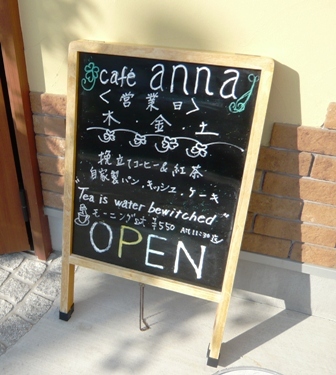 café anna
<営業日>
木・金・土
挽立てコーヒー&紅茶
自家製パン、キッシュ、ケーキ
"Tea is water bewitched"
モーニング ¥550 AM11:30迄
OPEN